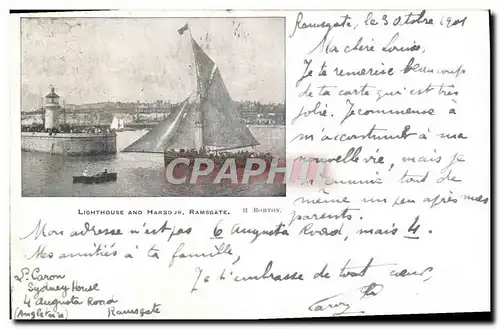 Ramsgate, le 3 Octobre 1901
Ma chère Louise,
Je te remercie beaucoup
de ta carte qui est très
jolie. Je commense à
m'accoutumer à ma
nouvelle vie, mais je
tout de
même un peu après mes
parents.
CPHARTOM
LIGHTHOUSE AND HARBOUR, RAMSGATE. H BORTON.
Mon adresse n'est pas 6 Augusta Road, mais 4.
Mes amitiés à ta famille,
Je t'embrasse de tout cœur,
L. Caron
Sydney House
4 augusta Road
(Angleterre) Ramsgate